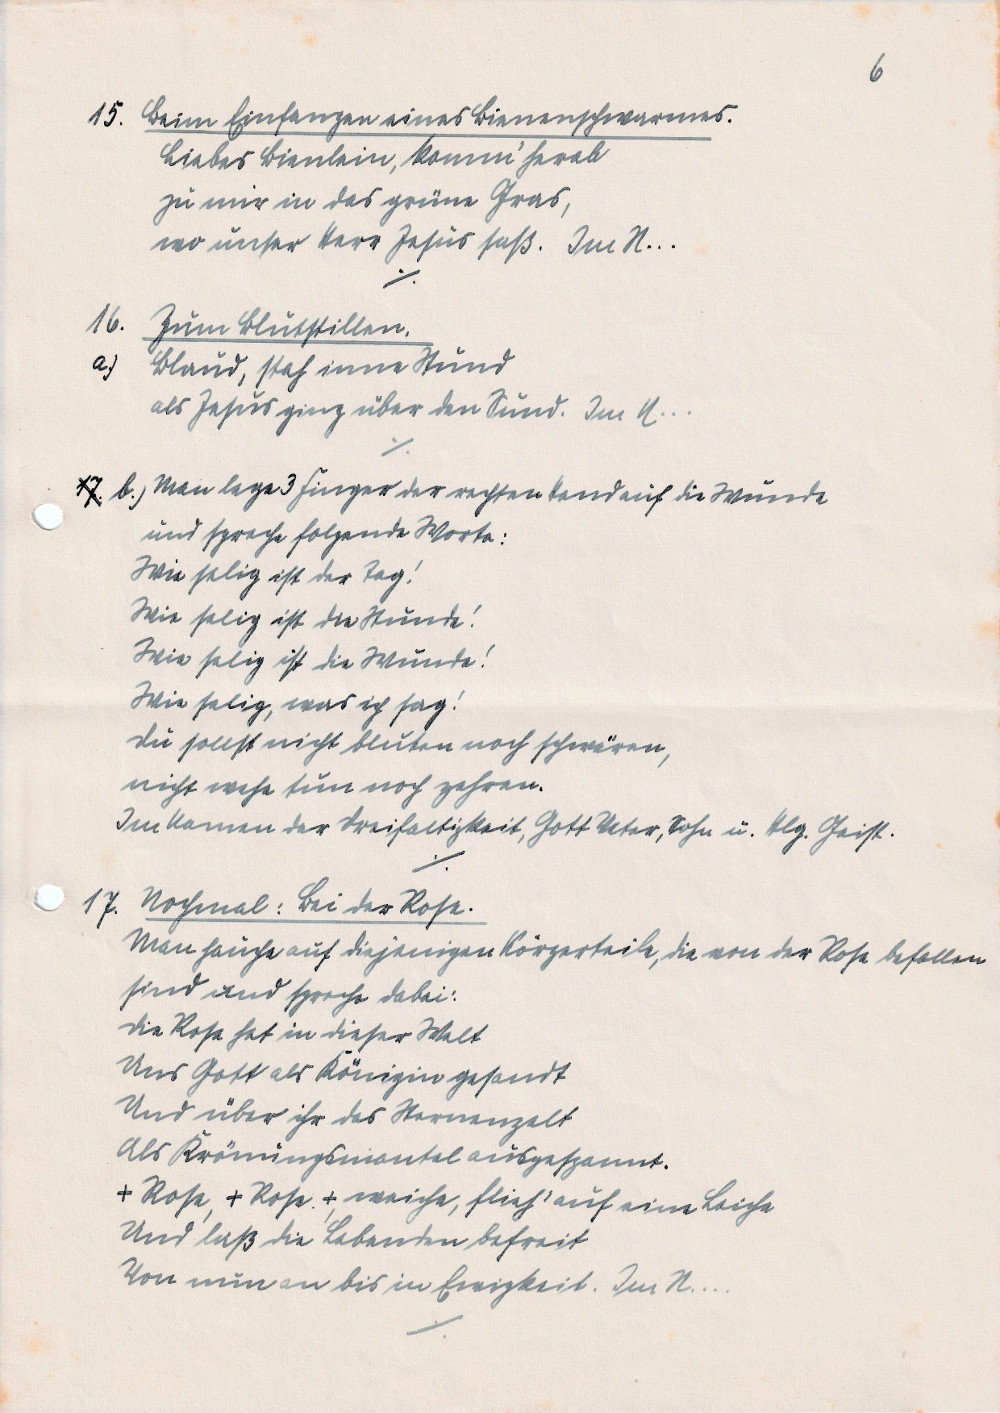 6
15. Beim Einfangen eines Bienenschwarmes.
Liebes Bienlein, komm' herab
zu mir in das grüne Gras,
wo unser Herr Jesus saß. Im N...
16. Zum Blutstillen.
a) Blaud, stah inne Stund
als Jesus ging über den Sund. Im N...
17. b.) Man lege 3 Finger der rechten Hand auf die Wunde
und spreche folgende Worte:
Wie selig ist der Tag!
Wie selig ist die Stunde!
Wie selig ist die Wunde!
Wie selig, was ich sag!
Du sollst nicht bluten noch schwären,
nicht wehe tun noch zehren.
Im Namen der Dreifaltigkeit, Gott Vater, Sohn u. Hlg. Geist.
17. Nochmal: Bei der Rose.
Man hauche auf diejenigen Körperteile, die von der Rose befallen
sind und spreche dabei:
Die Rose hat in dieser Welt
Uns Gott als Königin gesandt
Und über ihr das Sternenzelt
Als Krönungsmantel ausgespannt.
+ Rose, + Rose +, weiche, flieh' auf eine Leiche
Und laß die Lebenden befreit
Von nun an bis in Ewigkeit. Im N....